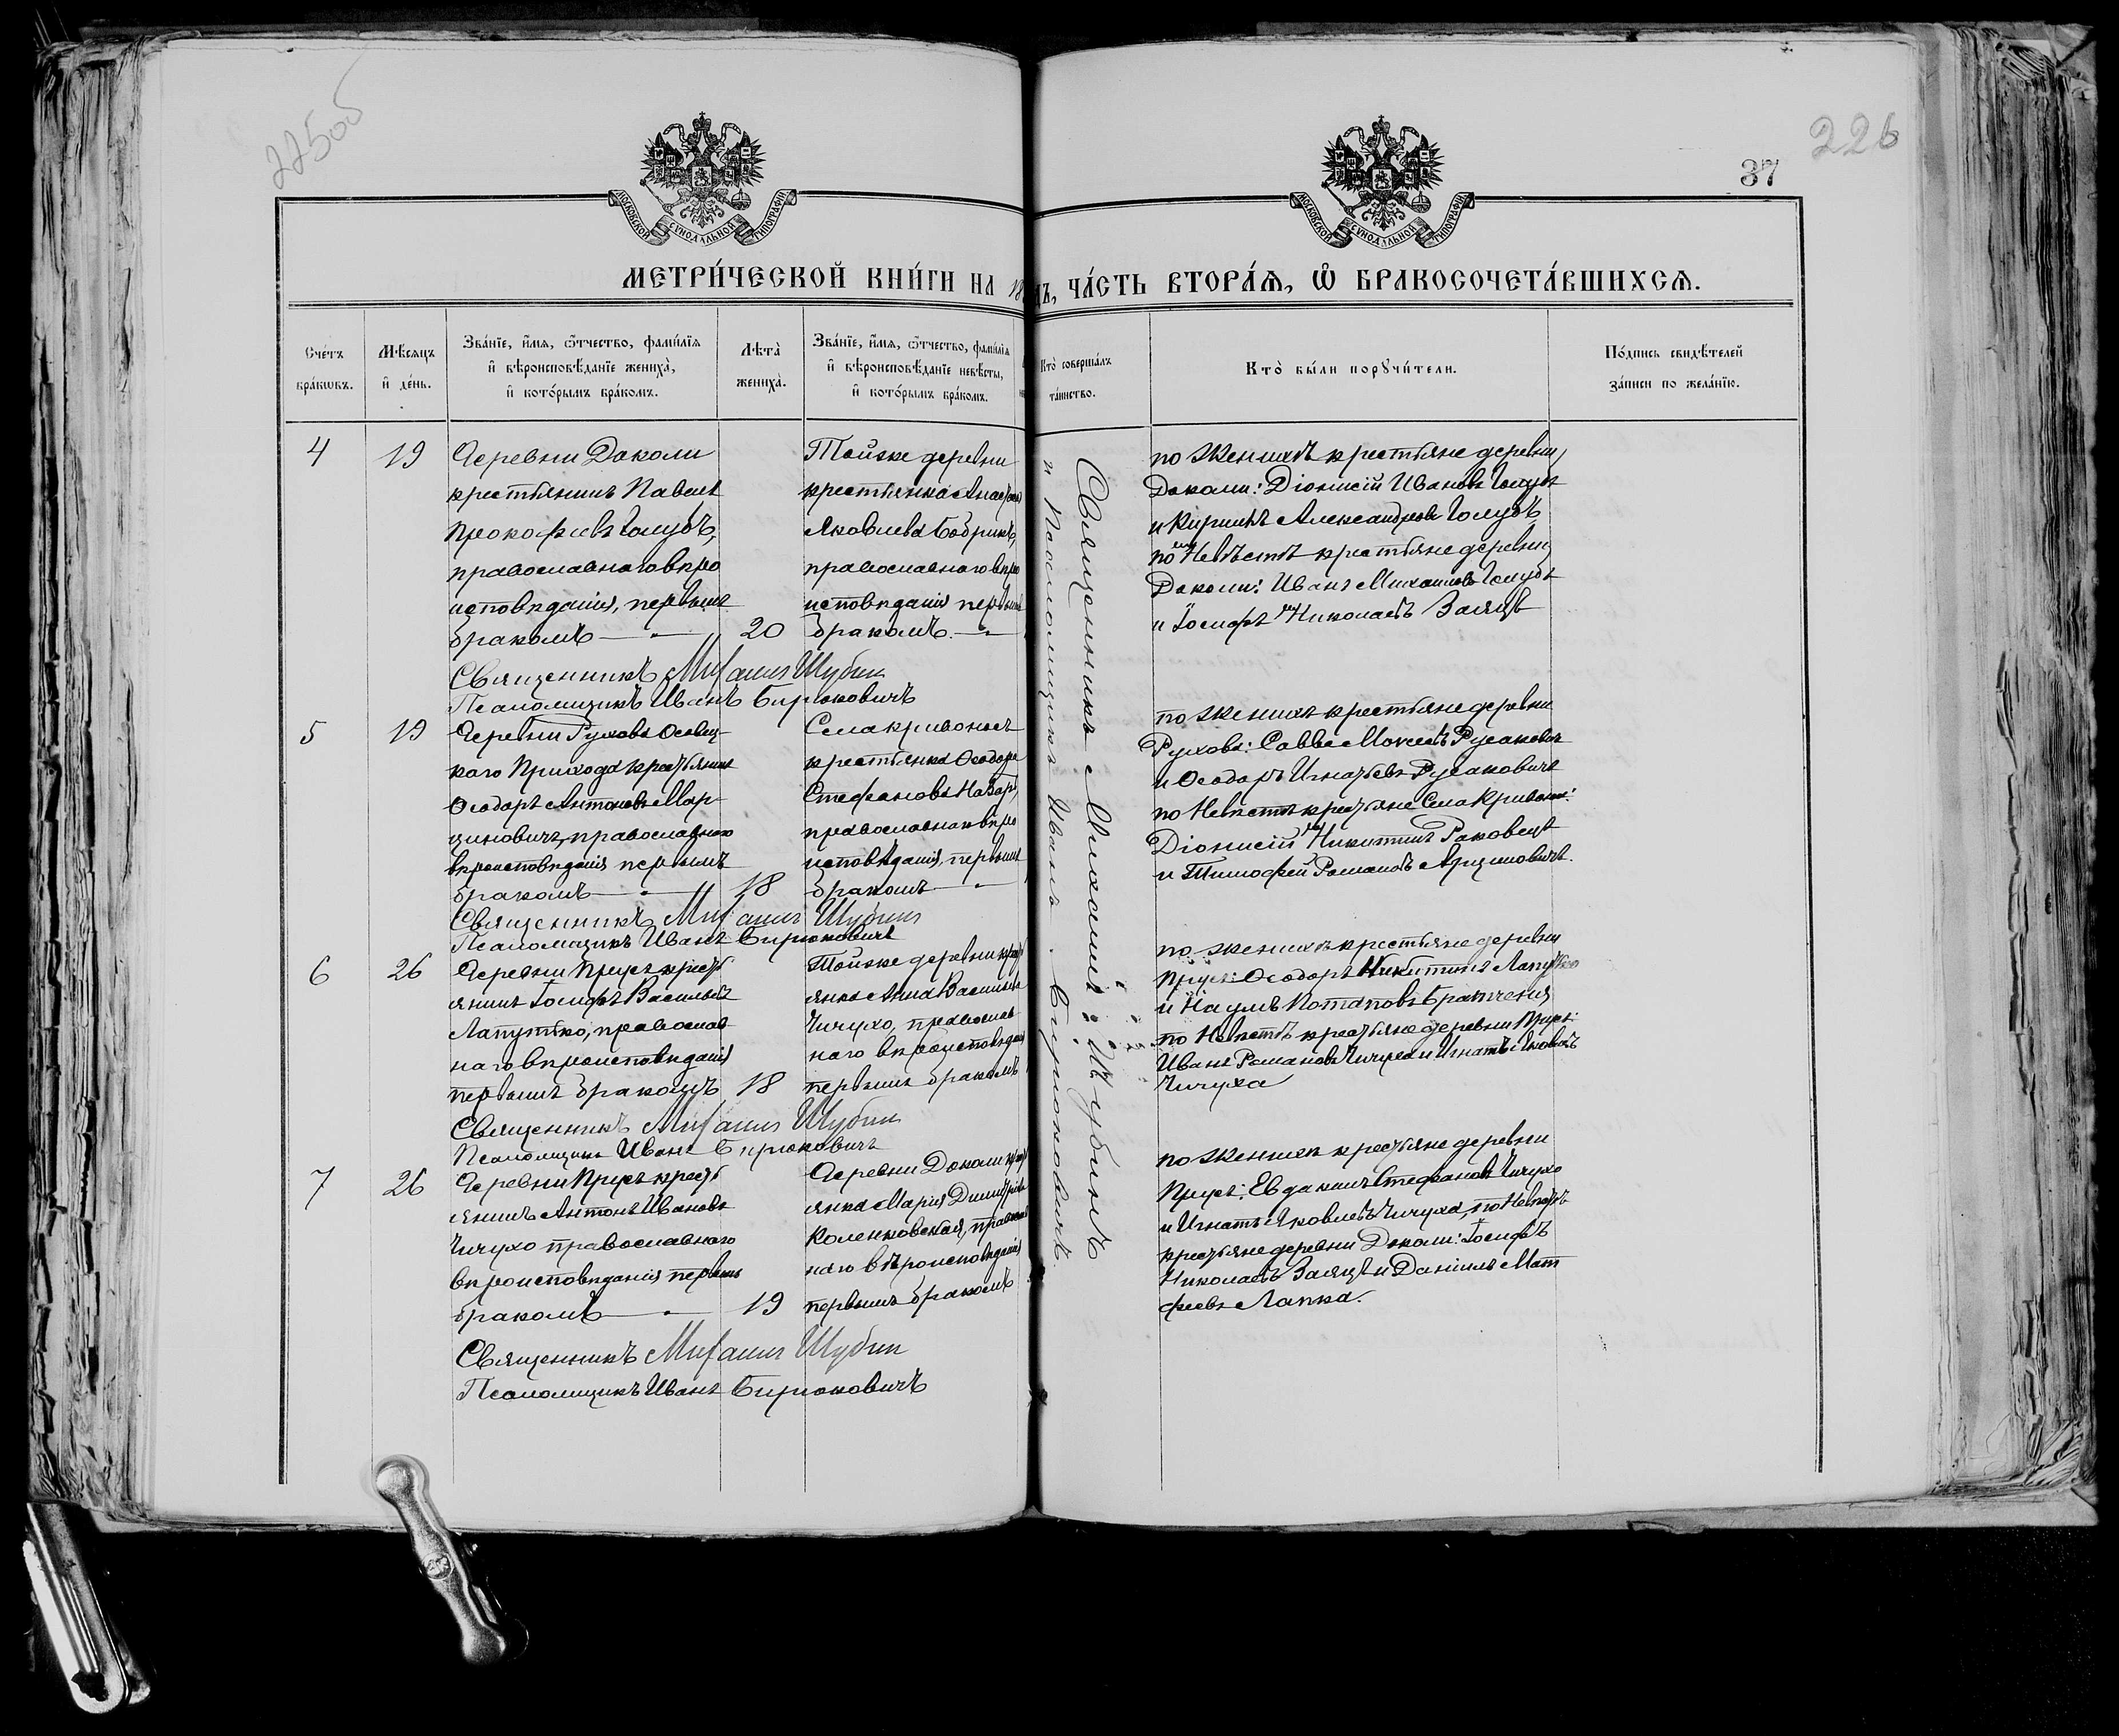 225об
226
37
МОСКОВСКОЙ СУНОДАЛЬНОЙ ТИПОГРАФІИ
МОСКОВСКОЙ СУНОДАЛЬНОЙ ТИПОГРАФІИ
МЕТРИ́ЧЕСКОЙ КНИ́ГИ НА 18
ДЪ, ЧА́СТЬ ВТОРА́Ѧ, Ѿ БРАКОСОЧЕТА́ВШИХСѦ.
Сче́тъ бра́кѡвъ.
Мѣ́сѧцъ и҆ де́нь.
Зва́нїе, и҆́мѧ, ѻ҆́тчество, фами́лїѧ и҆ вѣроисповѣ́данїе жениха̀, и҆ кото́рымъ бра́комъ.
Лѣта̀ жениха̀.
Зва́нїе, и҆́мѧ, ѻ҆́тчество, фами́лїѧ и҆ вѣроисповѣ́данїе невѣ́сты, и҆ кото́рымъ бра́комъ.
Кто̀ соверша́лъ та́инство.
Кто̀ бы́ли порꙋчи́тели.
По́дпись свидѣ́телей за́писи по жела́нїю.
4
19
Деревни Доколи
крестьянинъ Павелъ
Прокофіевъ Голубъ,
православнаго вѣро
исповѣданія, первымъ
бракомъ
20
Тойже деревни
крестьянка Анаст
Яковлева Бобрикъ,
православнаго вѣро
исповѣданія первымъ
бракомъ.
по женихѣ крестьяне деревни
Доколи: Діонисій Ивановъ Голубъ
и Кириллъ Александровъ Голубъ,
по Невѣстѣ крестьяне деревни
Доколи: Иванъ Михаиловъ Голубъ
и Іосифъ Николаевъ Заяцъ
Священникъ Михаилъ Шубин
Псаломщикъ Иванъ Бирюковичъ
5
19
Деревни Рухова Осовец-
каго Прихода крестьянинъ
Ѳеодоръ Антоновъ Мар-
циновичъ, православнаго
вѣроисповѣданія первымъ
бракомъ
18
Села Кривоносъ
крестьянка Ѳеодора
Стефанова Назар
православнаго вѣро
исповѣданія, первымъ
бракомъ
по женихѣ крестьяне деревни
Рухова: Савва Моисеевъ Русаковичъ
и Ѳеодоръ Игнатьевъ Русаковичъ
по Невѣстѣ крестьяне Села Кривонос:
Діонисій Никитинъ Раковецъ
и Тимофей Романовъ Арцимовичъ.
Священникъ Михаилъ Шубинъ
Псаломщикъ Иванъ Бирюковичъ
6
26
Деревни Прусъ крест
янинъ Іосифъ Васильевъ
Лапутько, православ
наго вѣроисповѣданія
первымъ бракомъ
18
Тойже деревни крест
янка Анна Васильева
Чичухо, православ
наго вѣроисповѣдан
первымъ бракомъ
по женихѣ крестьяне деревни
Прусъ: Ѳеодоръ Никитинъ Лапутько
и Наумъ Потаповъ Братченя
по Невѣстѣ крестьяне деревни Прусъ:
Иванъ Романовъ Чичуха и Игнатъ Яковлевъ
Чичуха
Священникъ Михаилъ Шубин
Псаломщикъ Иванъ Бирюковичъ
7
26
Деревни Прусъ крест
янинъ Антонъ Ивановъ
Чичухо православнаго
вѣроисповѣданія первымъ
бракомъ
19
Деревни Доколи крест
янка Марія Димитріева
Коленковская, православ
наго вѣроисповѣданія
первымъ бракомъ
по женихѣ крестьяне деревни
Прусъ: Евдокимъ Стефановъ Чичухо
и Игнатъ Яковлевъ Чичуха, по Невѣстѣ
крестьяне деревни Доколи: Іосифъ
Николаевъ Заяцъ и Даніилъ Мат
феевъ Лапка.
Священникъ Михаилъ Шубин
Псаломщикъ Иванъ Бирюковичъ
Священникъ Михаилъ Шубинъ
и Псаломщикъ Иванъ Бирюковичъ.